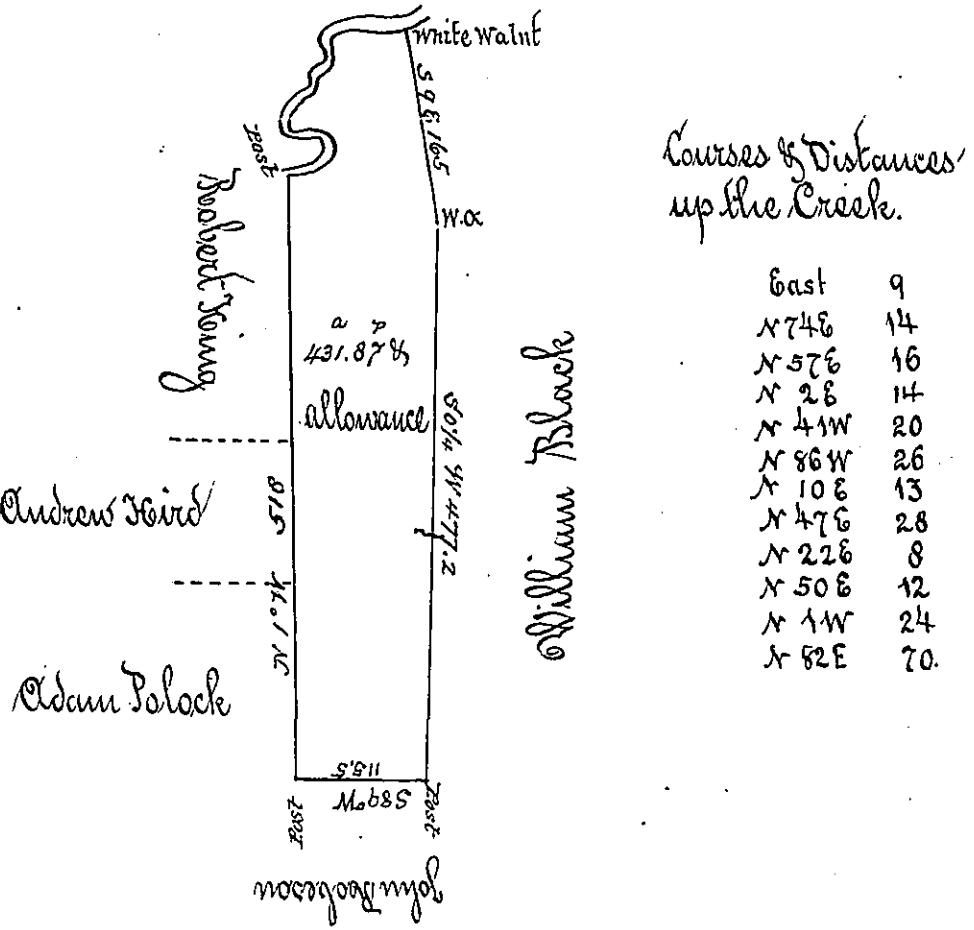 White Walnt
S 9 E 165
Post
W.O
Robert King
a p
431.87 &
allowance
S 0 1/4 W 477.2
William Black
Andrew Hird
N 1 W 515
Adam Polock
115.5
S 89 W
Post
Post
John
Courses & Distances
up the Creek.
East 9
N 74 E 14
N 57 E 16
N 2 E 14
N 41 W 20
N 86 W 26
N 10 E 13
N 47 E 28
N 22 E 8
N 50 E 12
N 1 W 24
N 82 E 70.